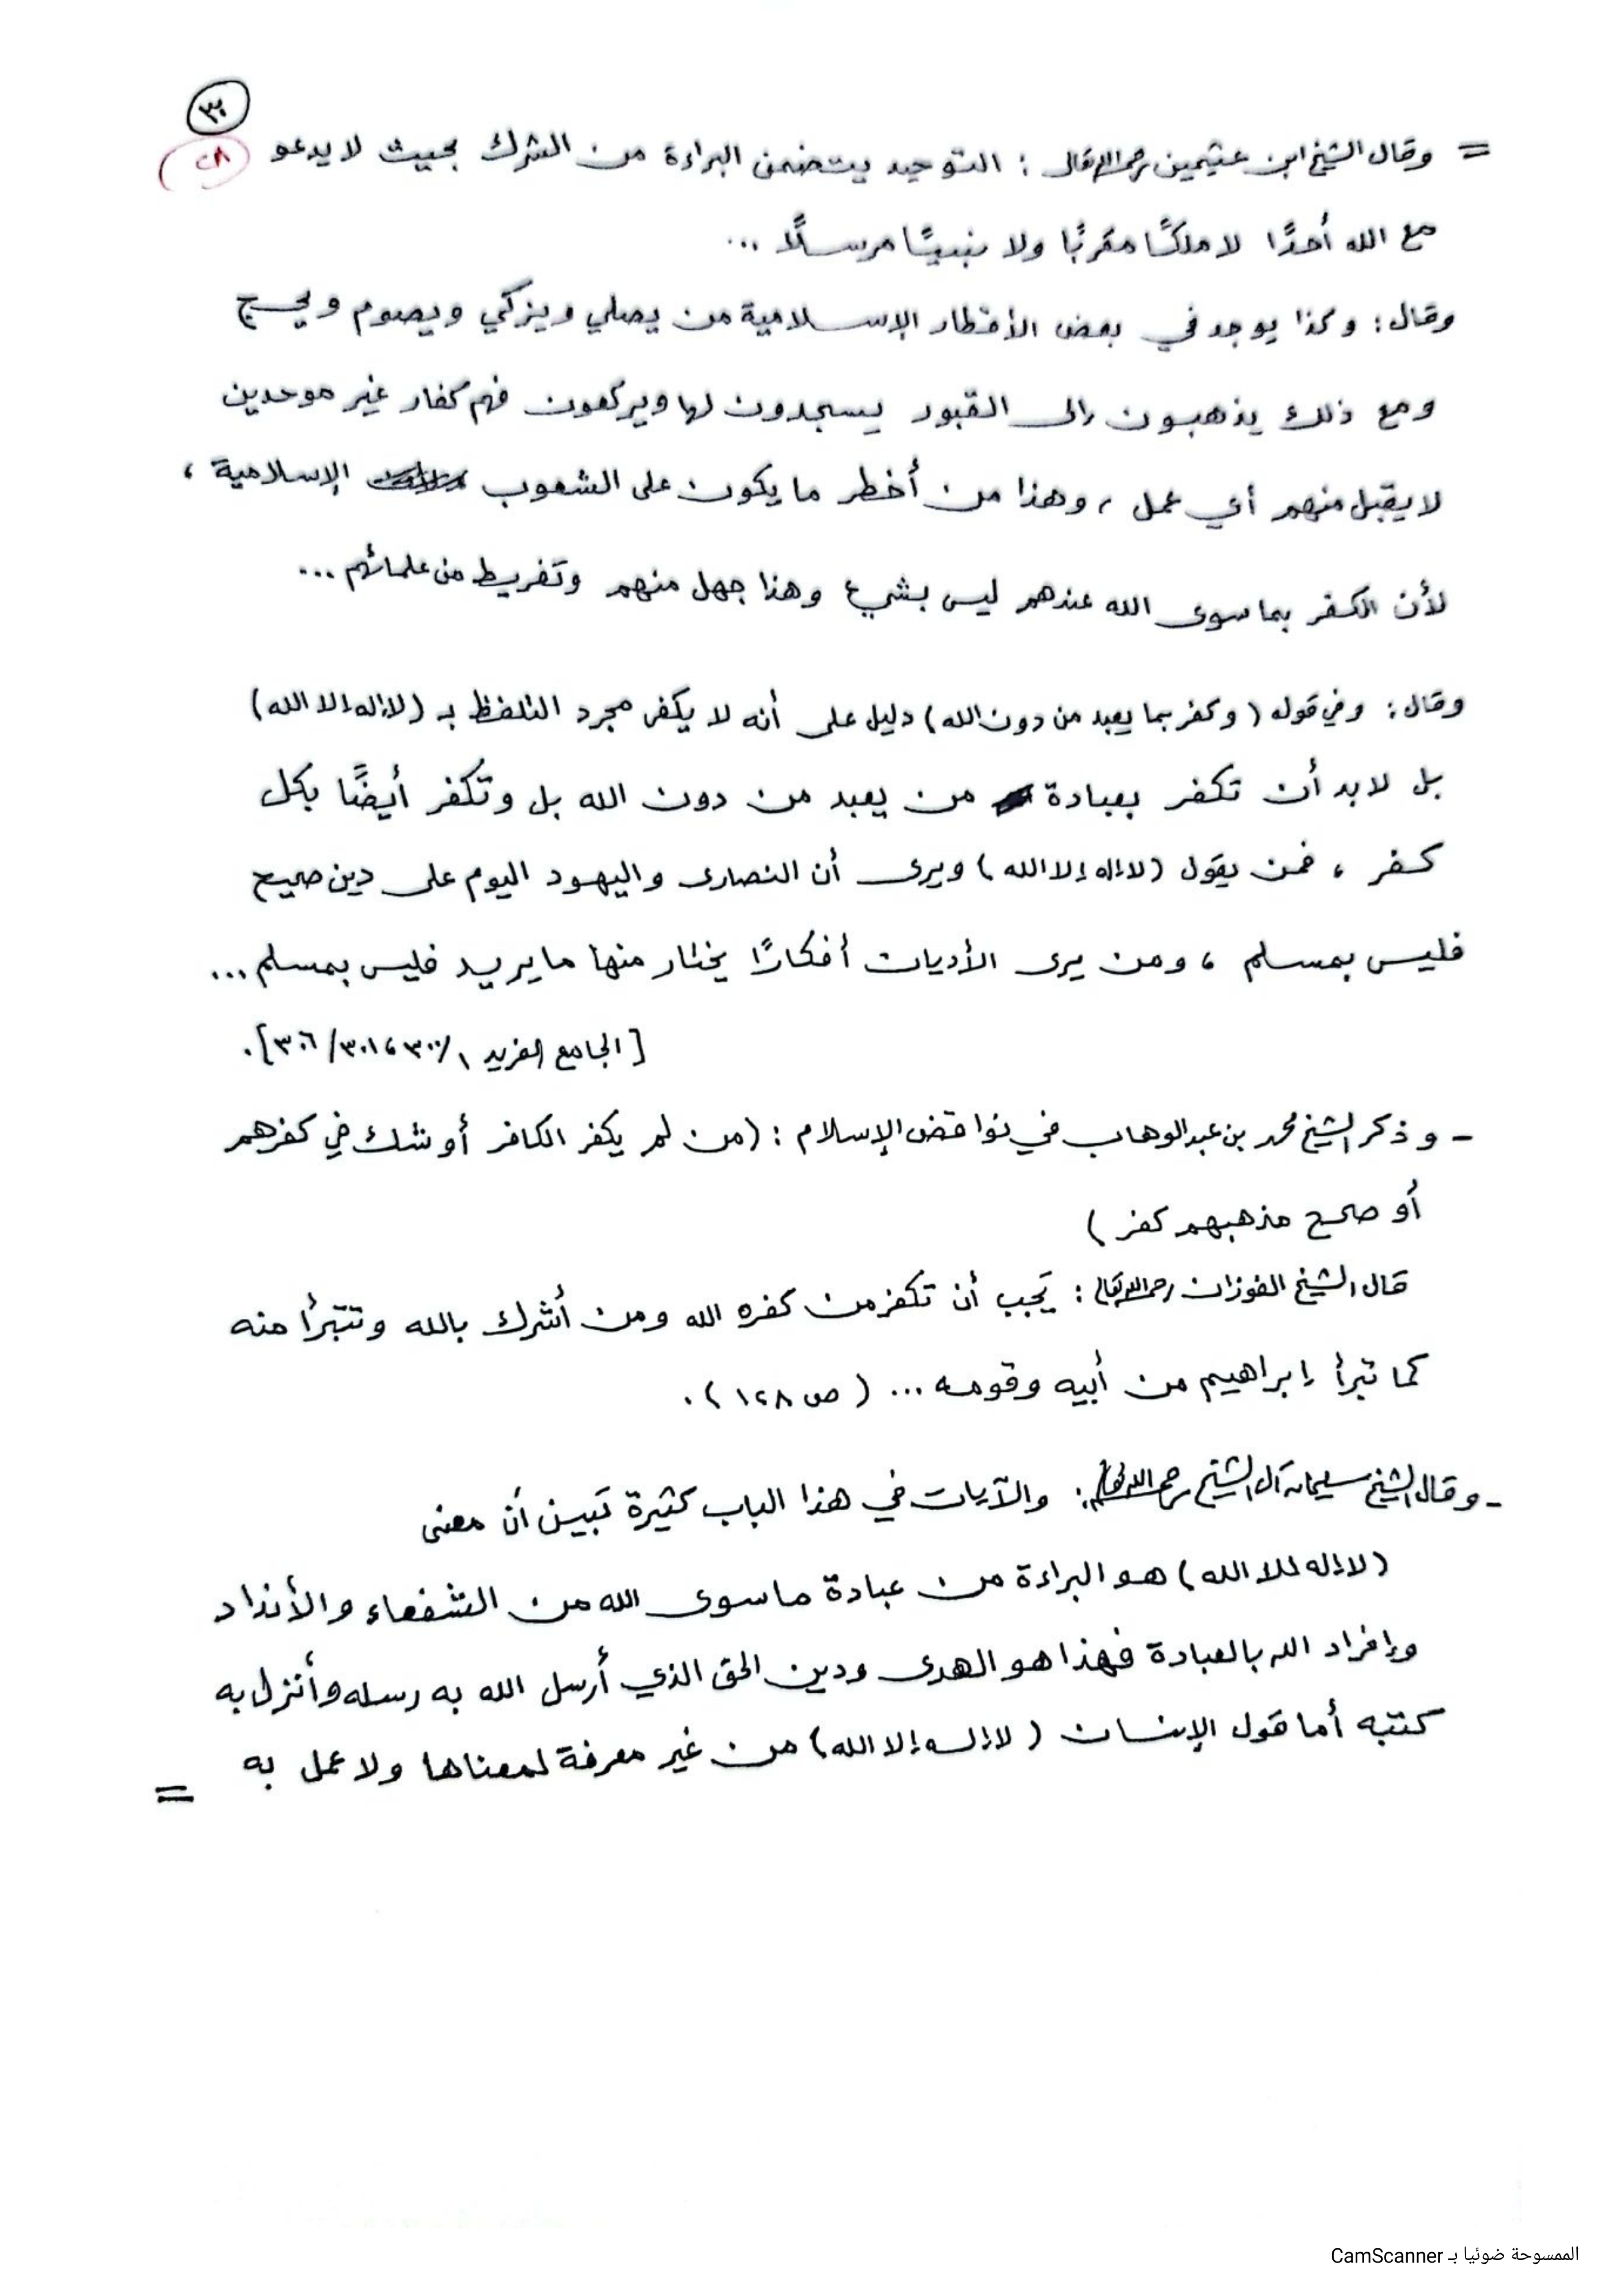 ٣٠
٢٨
= وقال الشيخ ابن عثيمين رحمه الله تعالى : التوحيد يتضمن البراءة من الشرك بحيث لا يدعو
مع الله أحدًا لا ملكًا مقربًا ولا نبيًا مرسلًا ...
وقال : وكذا يوجد في بعض الأقطار الإسلامية من يصلي ويزكي ويصوم ويحج
ومع ذلك يذهبون إلى القبور يسجدون لها ويركعون فهم كفار غير موحدين
لا يقبل منهم أي عمل ، وهذا من أخطر ما يكون على الشعوب الإسلامية ،
لأن الكفر بما سوى الله عندهم ليس بشيء وهذا جهل منهم وتفريط من علمائهم ...
وقال : وفي قوله ( وكفر بما يعبد من دون الله ) دليل على أنه لا يكفي مجرد التلفظ بـ ( لا إله إلا الله )
بل لا بد أن تكفر بعبادة من يعبد من دون الله بل وتكفر أيضًا بكل
كفر ، فمن يقول ( لا إله إلا الله ) ويرى أن النصارى واليهود اليوم على دين صحيح
فليس بمسلم ، ومن يرى الأديان أفكارًا يختار منها ما يريد فليس بمسلم ...
[ الجامع الفريد ١/ ٣٠٠ ، ٣٠١ / ٣٠٦ ] .
- وذكر الشيخ محمد بن عبدالوهاب في نواقض الإسلام : ( من لم يكفر الكافر أو شك في كفرهم
أو صحح مذهبهم كفر )
قال الشيخ الفوزان رحمه الله تعالى : يَجب أن تكفر من كفره الله ومن أشرك بالله وتتبرأ منه
كما تبرأ إبراهيم من أبيه وقومه ... ( ص ١٢٨ ) .
- وقال الشيخ سليمان آل الشيخ رحمه الله تعالى : والآيات في هذا الباب كثيرة تَبين أن معنى
( لا إله إلا الله ) هو البراءة من عبادة ما سوى الله من الشفعاء والأنداد
وإفراد الله بالعبادة فهذا هو الهدى ودين الحق الذي أرسل الله به رسله وأنزل به
كتبه أما قول الإنسان ( لا إله إلا الله ) من غير معرفة لمعناها ولا عمل به
=
الممسوحة ضوئيا بـ CamScanner